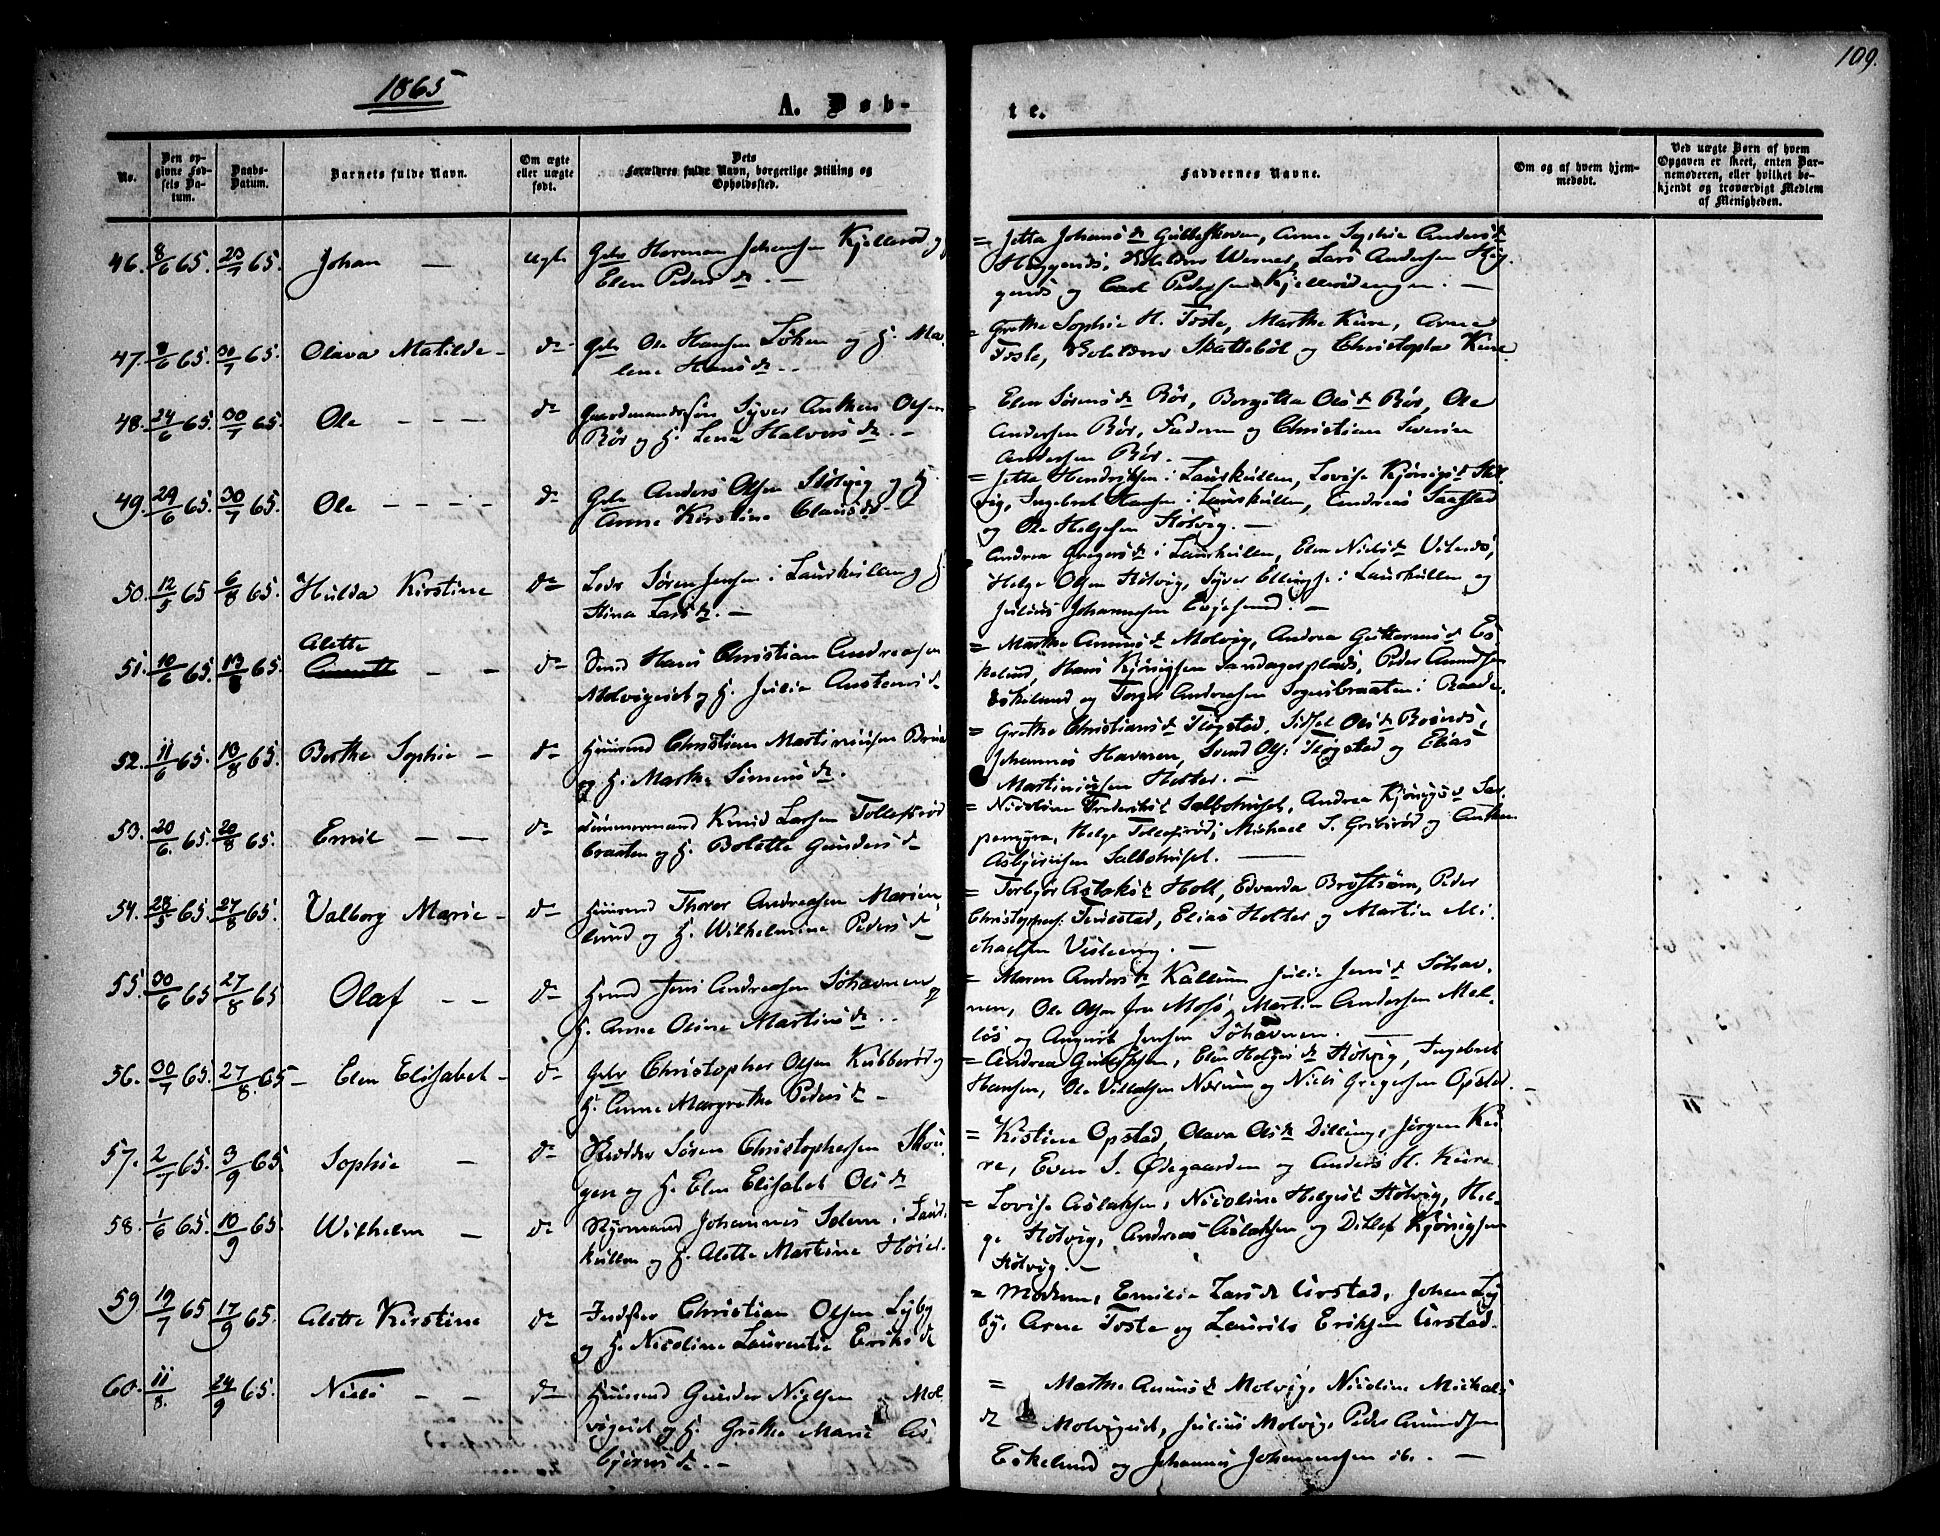 1865
109.
A. Døb-
te.
No.
Den op-
givne Fød-
sels Da-
tum.
Daabs-
Datum.
Barnets fulde Navn.
Om ægte
eller uægte
født.
Dets
Forældres fulde Navn, borgerlige Stilling og
Opholdssted.
Faddernes Navne.
Om og af hvem hjem-
medøbt.
Ved uægte Børn af hvem
Opgaven er skeet, enten Bar-
nemoderen, eller hvilket be-
kjendt og troværdigt Medlem
af Menigheden.
46. 8/6 65. 20/7 65. Johan — Herman Johansen Kjellerød og
Elen Peders d. —
= Jetta Johans d. Anne Sophie Anders d.
Lars Andersen
og Carl Pedersen —
47. 8/6 65. 30/7 65. Olava Matilde — do Ole Hansen og H. Ma-
lene Hans d. -
= Grethe Sophie H. Toste, Marthe Kure, Anne
Toste, Skattebøl og Christopher Kure
48. 24/6 65. 30/7 65. Ole - - - do Gaardmandssøn Syver Anthon Olsen
Rør og H. Lena Halvors d. -
= Elen Sørens d. Rør, Borgitta Ols d. Rør, Ole
Andersen Rør, Faderen og Christian Severin
Andersen Rør. —
49. 29/6 65. 30/7 65. Ole - - - - do Anders Olsen Støtvig og H.
Anne Kirstine Claus d.
= Jetta Hendriksen i Laurkullen, Lovise Kjønigs d. Støt-
vig, Ingebret Hansen i Laurkullen, Andreas Saastad
og Ole Helgesen Støtvig. —
50. 12/5 65 6/8 65. Hulda Kirstine do Søren Jensen i Laurkullen og H.
Stina Lars d. —
Andrea Gregers d. i Laurkullen, Elen Niels d.
Helge Olsen Støtvig, Syver Ellingse i Laurkullen og
Julius Johannesen Evjesund. —
51. 10/6 65. 13/8 65. Alette - - do Hans Christian Andreasen
Molvigeiet og H. Julie Austens d.
= Marthe Amuns d. Molvig, Andrea Es-
kelund, Hans Kjønigsen Peder Amundsen
Eskelund og Torger Andreasen Sognsbraaten i Raade.
52. 11/6 65. 13/8 65. Berthe Sophie — do Huusmd Christian Martiniusen
og H. Marthe Simens d.
= Grethe Christians d. Tløgstad, Sidsel Ols d.
Johannes Havnen, Svend Ols. Tløgstad og Elias
Martiniusen Holter. —
53. 20/6. 65. 20/8 65. Emil — — do Tømmermand Knud Larsen Tollefsrød
braaten og H. Bolette Gunders d.
= Nicoline Frederiks d. Saltbohuset, Andrea Kjønigs d.
Helge Tollefsrød, Michael S. Gribsrød og Anthon
Asbjørnsen Saltbohuset. —
54. 28/5 65. 27/8 65. Valborg Marie — do Huusmd Thorer Andreasen Marien-
lund og H. Wilhelmine Peders d.
= Torbjør Aslaks d. Holt, Edvarda Peder
Christophers. Elias Holter og Martin Mi-
chaelsen —
55. 30/6 65 27/8 65 Olaf — — do Jens Andreasen Søhavnen og
H. Anne Oline Martins d. -
= Maren Anders d. Kallum Julie Jens d. Søhav-
nen, Ole Olsen fra Moss, Martin Andersen Mel-
løs og August Jensen Søhavnen. —
56. 30/7 65. 27/8. 65 — Elen Elisabet — do Christopher Olsen Kubberød og
H. Anne Margrethe Peders d. —
= Andrea Elen Helges d. Støtvig, Ingebret
Hansen, Ole Nærum og Niels Gregersen Opstad.
57. 2/7 65. 3/9 65. Sophie — do Søren Christophersen Skou-
gen og H. Elen Elisabet Ols d.
= Kistine Opstad, Olava Ols d. Dilling, Jørgen Ku-
re, Even S. Ødegaarden og Anders H. Kure -
58. 1/6 65. 10/9 65. Wilhelm — do Styrmand Johannes Solem i Laur-
kullen og H. Alette Martine
= Lovise Aslaksen, Nicoline Helges d. Støtvig, Hel-
ge Støtvig, Andreas Aslaksen og Ditlef Kjønigsen
Støtvig. —
59 19/7 65 17/9 65. Alette Kirstine do Indster Christian Olsen Lyby
og H. Nicoline Laurentie Eriks d.
= Moderen, Emilie Lars d. Årstad, Johan Ly-
by, Arne Toste og Laurits Eriksen Årstad.
60. 11/8. 24/9 65. Niels — — do Huusmd Gunder Nielsen Mol-
vigeiet og H. Grethe Marie As-
bjørns d. —
= Marthe Amuns d. Molvig, Nicoline Michals
d. Molvigeiet, Julius Molvig, Peder Amundsen
Eskelund og Johannes Johannesen ib. —